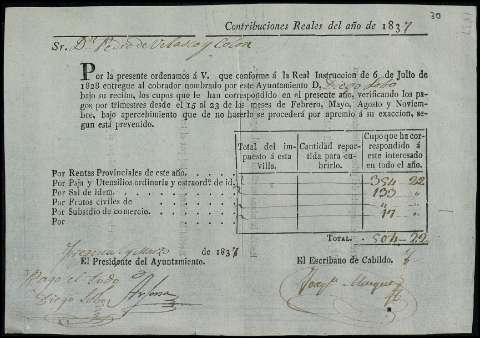 30
Contribuciones Reales del año de 1837
Sr. Dn. Pedro de Urbasa y Colon
Por la presente ordenamos á V. que conforme á la Real Instruccion de 6 de Julio de
1828 entregue al cobrador nombrado por este Ayuntamiento D. Diego
bajo su recibo, los cupos que le han correspondido en el presente año, verificando los pa-
gos por trimestres desde el 15 al 23 de los meses de Febrero, Mayo, Agosto y Noviem-
bre, bajo apercebimiento que de no hacerlo se procederá por apremio á su exaccion, se-
gun está prevenido.
Total del im-
puesto á esta
Villa.
Cantidad repar-
tida para cu-
brirlo.
Cupo que ha cor-
respondido á
este interesado
en todo el año.
Por Rentas Provinciales de este año.
Por Paja y Utensilios ordinaria y estraord.ª de id. 354 22
Por Sal de idem. 133
Por Frutos civiles de
Por Subsidio de comercio. 17
Por
TOTAL. 504-22
de 1837
El Presidente del Ayuntamiento.
El Escribano de Cabildo.
Pago el todo
Diego
Josef Marquez